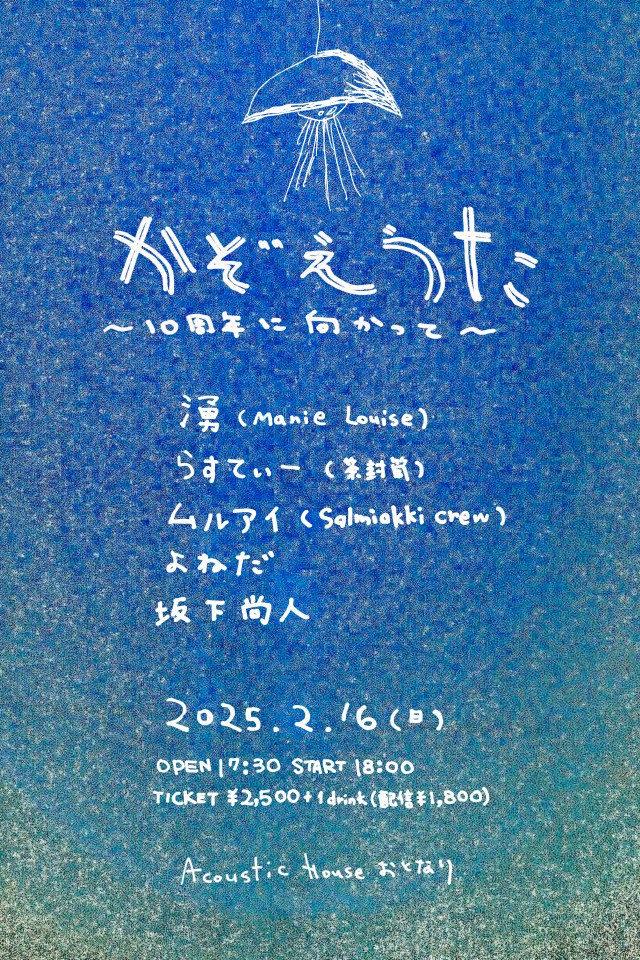 かぞえうた
〜10周年に向かって〜
湧(Manie Louise)
らすてぃー(茶封筒)
ムルアイ(Salmiakki crew)
よねだ
坂下尚人
2025.2.16(日)
OPEN 17:30 START 18:00
TICKET ¥2,500+1drink(配信¥1,800)
Acoustic House おとなり